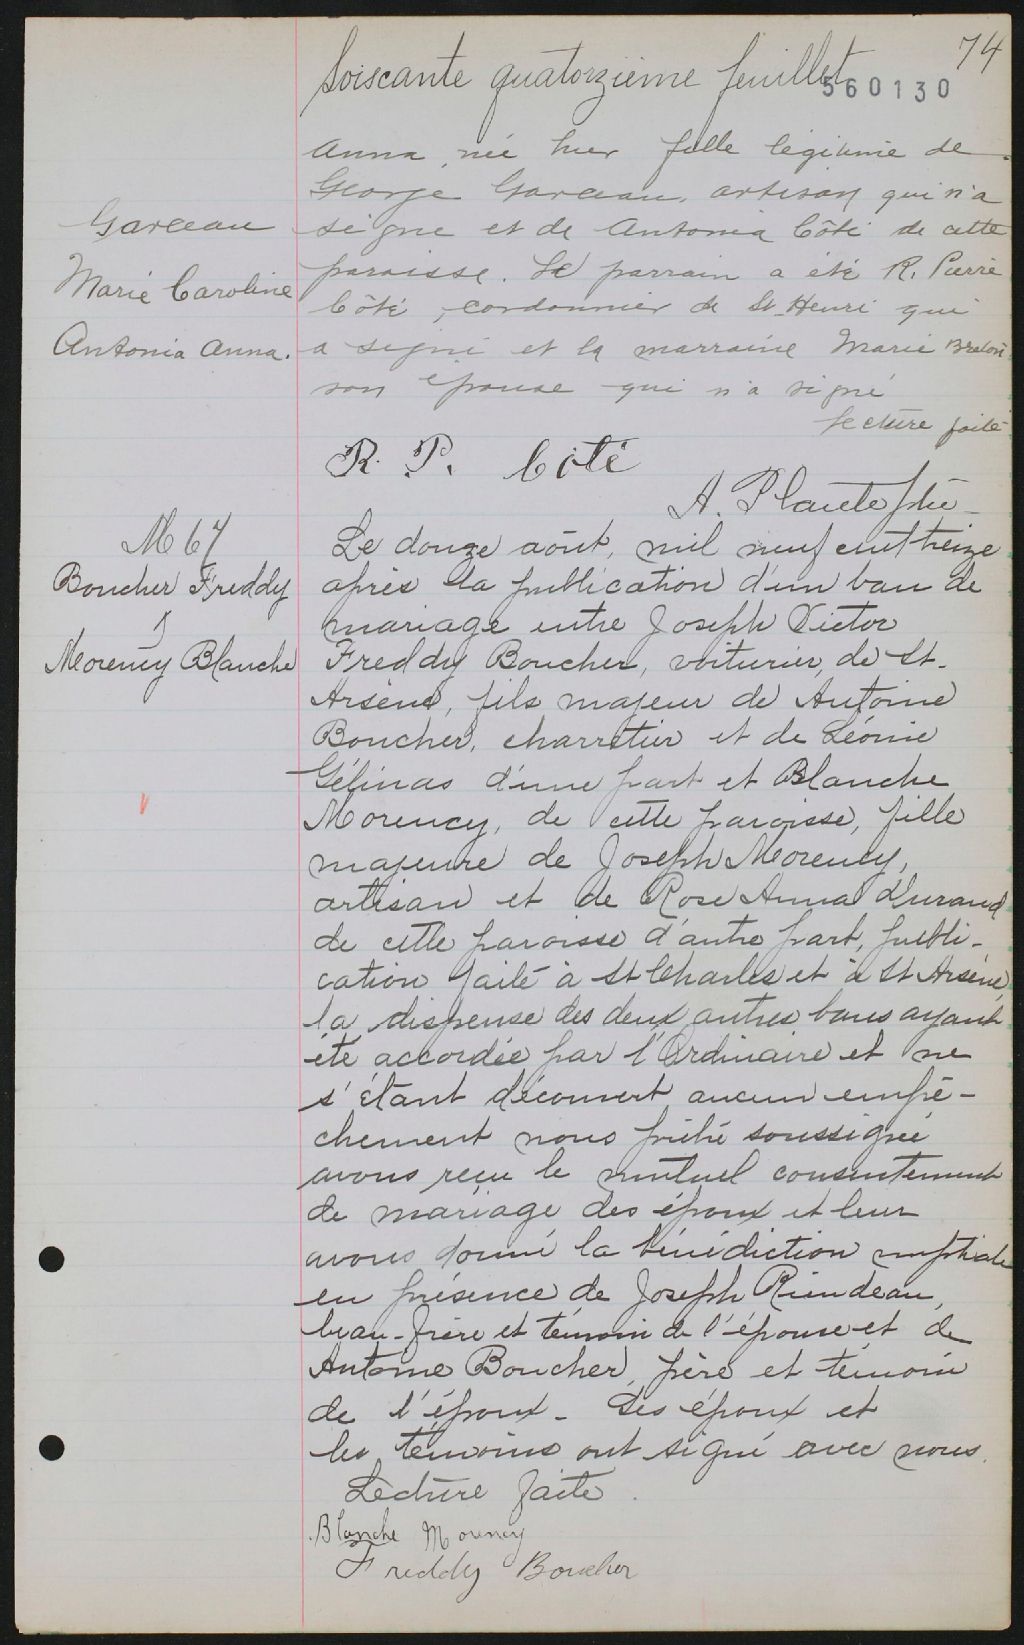 74
Soiscante quatorzième feuillet
560130
Anna, née hier fille légitime de
George Garceau, artisan qui n'a
signé et de Antonia Côté de cette
paroisse. Le parrain a été R. Pierre
Côté, cordonnier de St-Henri qui
a signé et la marraine Marie Breton
son épouse qui n'a signé
Lecture faite
Garceau
Marie Caroline
Antonia Anna.
R. P. Côté
A. Plante ptre
M 67
Boucher Freddy
&
Morency Blanche
Le douze août, mil neuf cent treize
après la publication d'un ban de
mariage entre Joseph Victor
Freddy Boucher, voiturier, de St-
Arsène, fils majeur de Antoine
Boucher, charretier et de Léonie
Gélinas d'une part et Blanche
Morency, de cette paroisse, fille
majeure de Joseph Morency,
artisan et de Rose Anna Durand
de cette paroisse d'autre part, publi-
cation faite à St Charles et à St Arsène,
la dispense des deux autres bans ayant
été accordée par l'Ordinaire et ne
s'étant découvert aucun empê-
chement nous prêtre soussigné
avons reçu le mutuel consentement
de mariage des époux et leur
avons donné la bénédiction nuptiale
en présence de Joseph Riendeau,
beau-frère et témoin de l'épouse et de
Antoine Boucher, père et témoin
de l'époux - Les époux et
les témoins ont signé avec nous.
Lecture faite.
Blanche Morency
Freddy Boucher